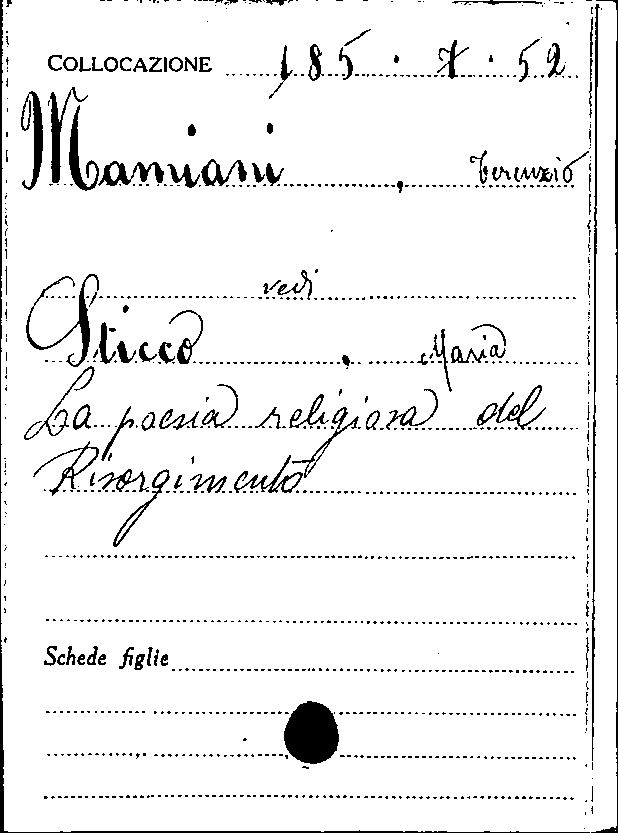 COLLOCAZIONE 185 · 7 · 52
Mamiani, Terenzio
vedi
Sticco, Maria
La poesia religiosa del
Risorgimento
Schede figlie